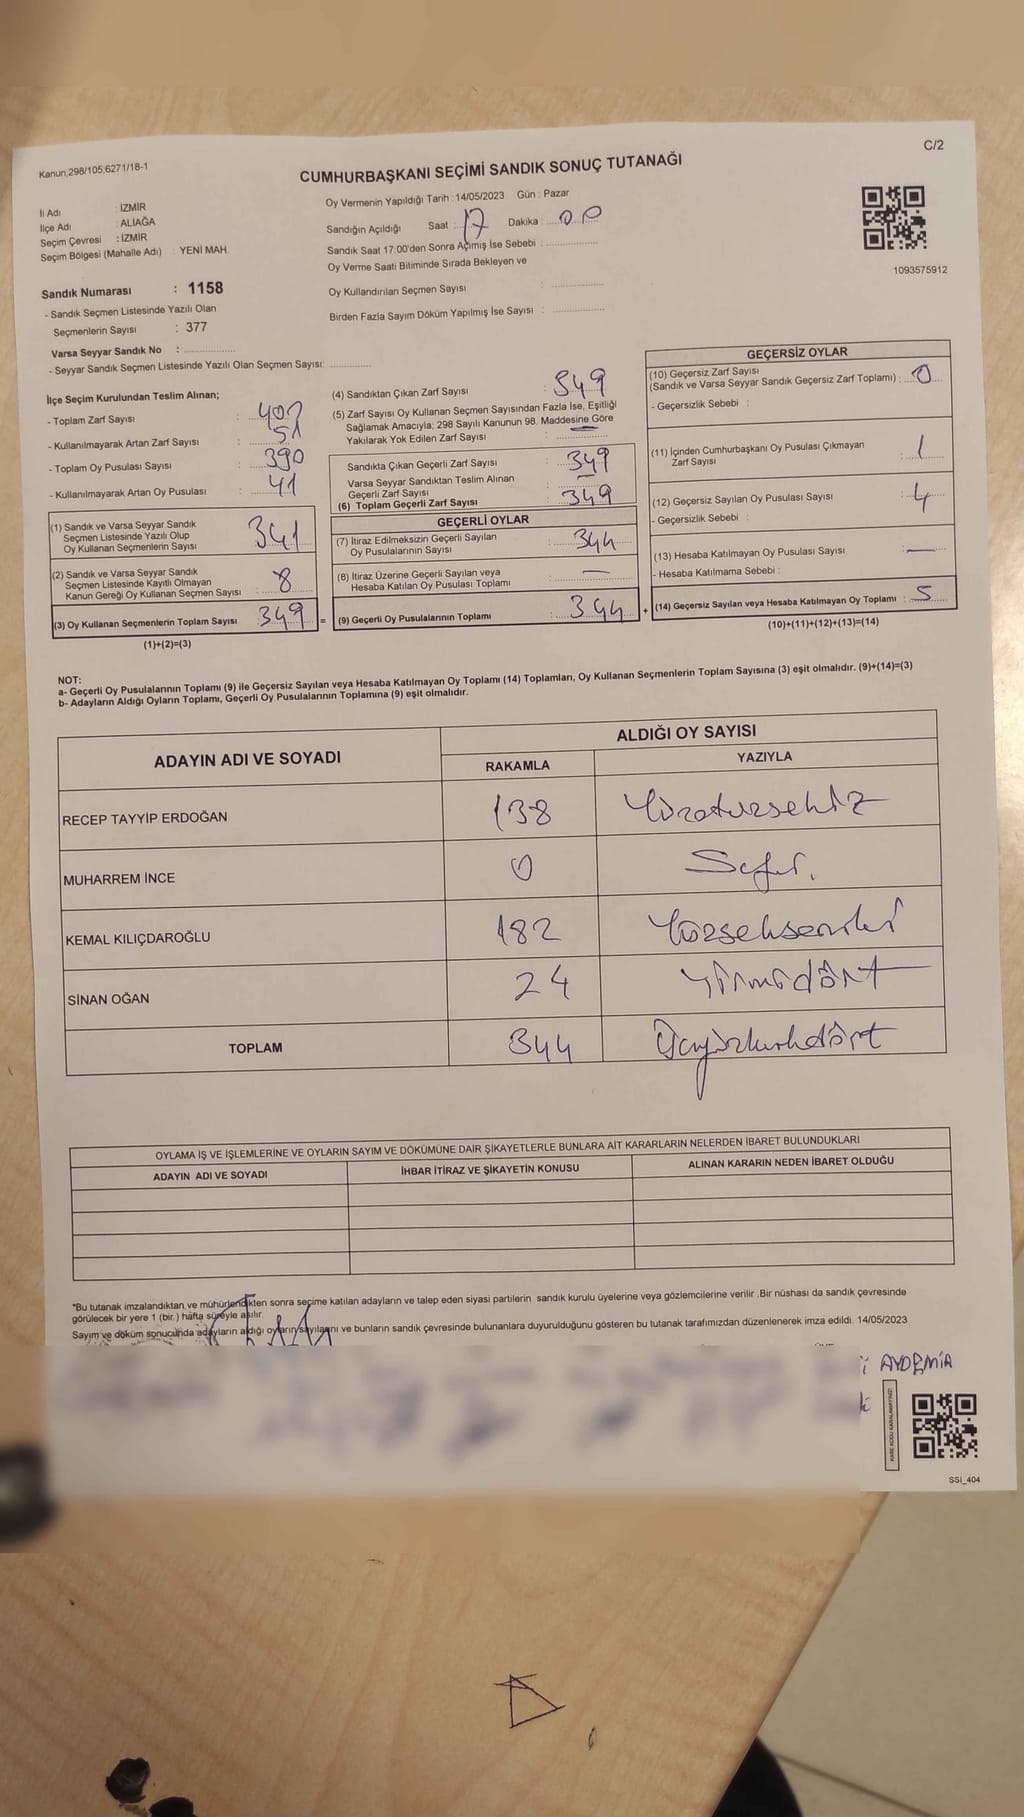 Kanun;298/105;6271/18-1
C/2
CUMHURBAŞKANI SEÇİMİ SANDIK SONUÇ TUTANAĞI
İl Adı : İZMİR
İlçe Adı : ALİAĞA
Seçim Çevresi : İZMİR
Seçim Bölgesi (Mahalle Adı) : YENİ MAH.
Oy Vermenin Yapıldığı Tarih :14/05/2023 Gün : Pazar
Sandığın Açıldığı Saat : 17 Dakika : 00
Sandık Saat 17:00'den Sonra Açılmış İse Sebebi :
Oy Verme Saati Bitiminde Sırada Bekleyen ve
Oy Kullandırılan Seçmen Sayısı :
Birden Fazla Sayım Döküm Yapılmış İse Sayısı :
1093575912
Sandık Numarası : 1158
- Sandık Seçmen Listesinde Yazılı Olan
Seçmenlerin Sayısı : 377
Varsa Seyyar Sandık No :
- Seyyar Sandık Seçmen Listesinde Yazılı Olan Seçmen Sayısı:
İlçe Seçim Kurulundan Teslim Alınan;
- Toplam Zarf Sayısı : 400
- Kullanılmayarak Artan Zarf Sayısı : 51
- Toplam Oy Pusulası Sayısı : 390
- Kullanılmayarak Artan Oy Pusulası : 41
(1) Sandık ve Varsa Seyyar Sandık
Seçmen Listesinde Yazılı Olup
Oy Kullanan Seçmenlerin Sayısı 341
(2) Sandık ve Varsa Seyyar Sandık
Seçmen Listesinde Kayıtlı Olmayan
Kanun Gereği Oy Kullanan Seçmen Sayısı 8
(3) Oy Kullanan Seçmenlerin Toplam Sayısı 349 =
(1)+(2)=(3)
(4) Sandıktan Çıkan Zarf Sayısı : 349
(5) Zarf Sayısı Oy Kullanan Seçmen Sayısından Fazla İse, Eşitliği
Sağlamak Amacıyla; 298 Sayılı Kanunun 98. Maddesine Göre
Yakılarak Yok Edilen Zarf Sayısı : —
Sandıkta Çıkan Geçerli Zarf Sayısı : 349
Varsa Seyyar Sandıktan Teslim Alınan
Geçerli Zarf Sayısı : —
(6) Toplam Geçerli Zarf Sayısı : 349
GEÇERLİ OYLAR
(7) İtiraz Edilmeksizin Geçerli Sayılan
Oy Pusulalarının Sayısı : 344
(8) İtiraz Üzerine Geçerli Sayılan veya
Hesaba Katılan Oy Pusulası Toplamı : —
(9) Geçerli Oy Pusulalarının Toplamı : 344 +
GEÇERSİZ OYLAR
(10) Geçersiz Zarf Sayısı
(Sandık ve Varsa Seyyar Sandık Geçersiz Zarf Toplamı) : 0
- Geçersizlik Sebebi :
(11) İçinden Cumhurbaşkanı Oy Pusulası Çıkmayan
Zarf Sayısı : 1
(12) Geçersiz Sayılan Oy Pusulası Sayısı : 4
- Geçersizlik Sebebi :
(13) Hesaba Katılmayan Oy Pusulası Sayısı : —
- Hesaba Katılmama Sebebi :
(14) Geçersiz Sayılan veya Hesaba Katılmayan Oy Toplamı : 5
(10)+(11)+(12)+(13)=(14)
NOT:
a- Geçerli Oy Pusulalarının Toplamı (9) ile Geçersiz Sayılan veya Hesaba Katılmayan Oy Toplamı (14) Toplamları, Oy Kullanan Seçmenlerin Toplam Sayısına (3) eşit olmalıdır. (9)+(14)=(3)
b- Adayların Aldığı Oyların Toplamı, Geçerli Oy Pusulalarının Toplamına (9) eşit olmalıdır.
ADAYIN ADI VE SOYADI ALDIĞI OY SAYISI
RAKAMLA YAZIYLA
RECEP TAYYİP ERDOĞAN 138 Yüzotuzsekiz
MUHARREM İNCE 0 Sıfır.
KEMAL KILIÇDAROĞLU 182 Yüzsekseniki
SİNAN OĞAN 24 Yirmidört
TOPLAM 344 Üçyüzkırkdört
OYLAMA İŞ VE İŞLEMLERİNE VE OYLARIN SAYIM VE DÖKÜMÜNE DAİR ŞİKAYETLERLE BUNLARA AİT KARARLARIN NELERDEN İBARET BULUNDUKLARI
ADAYIN ADI VE SOYADI İHBAR İTİRAZ VE ŞİKAYETİN KONUSU ALINAN KARARIN NEDEN İBARET OLDUĞU
*Bu tutanak imzalandıktan ve mühürlendikten sonra seçime katılan adayların ve talep eden siyasi partilerin sandık kurulu üyelerine veya gözlemcilerine verilir .Bir nüshası da sandık çevresinde
görülecek bir yere 1 (bir ) hafta süreyle asılır.
Sayım ve döküm sonucunda adayların aldığı oyların sayılarını ve bunların sandık çevresinde bulunanlara duyurulduğunu gösteren bu tutanak tarafımızdan düzenlenerek imza edildi. 14/05/2023
SSI_404